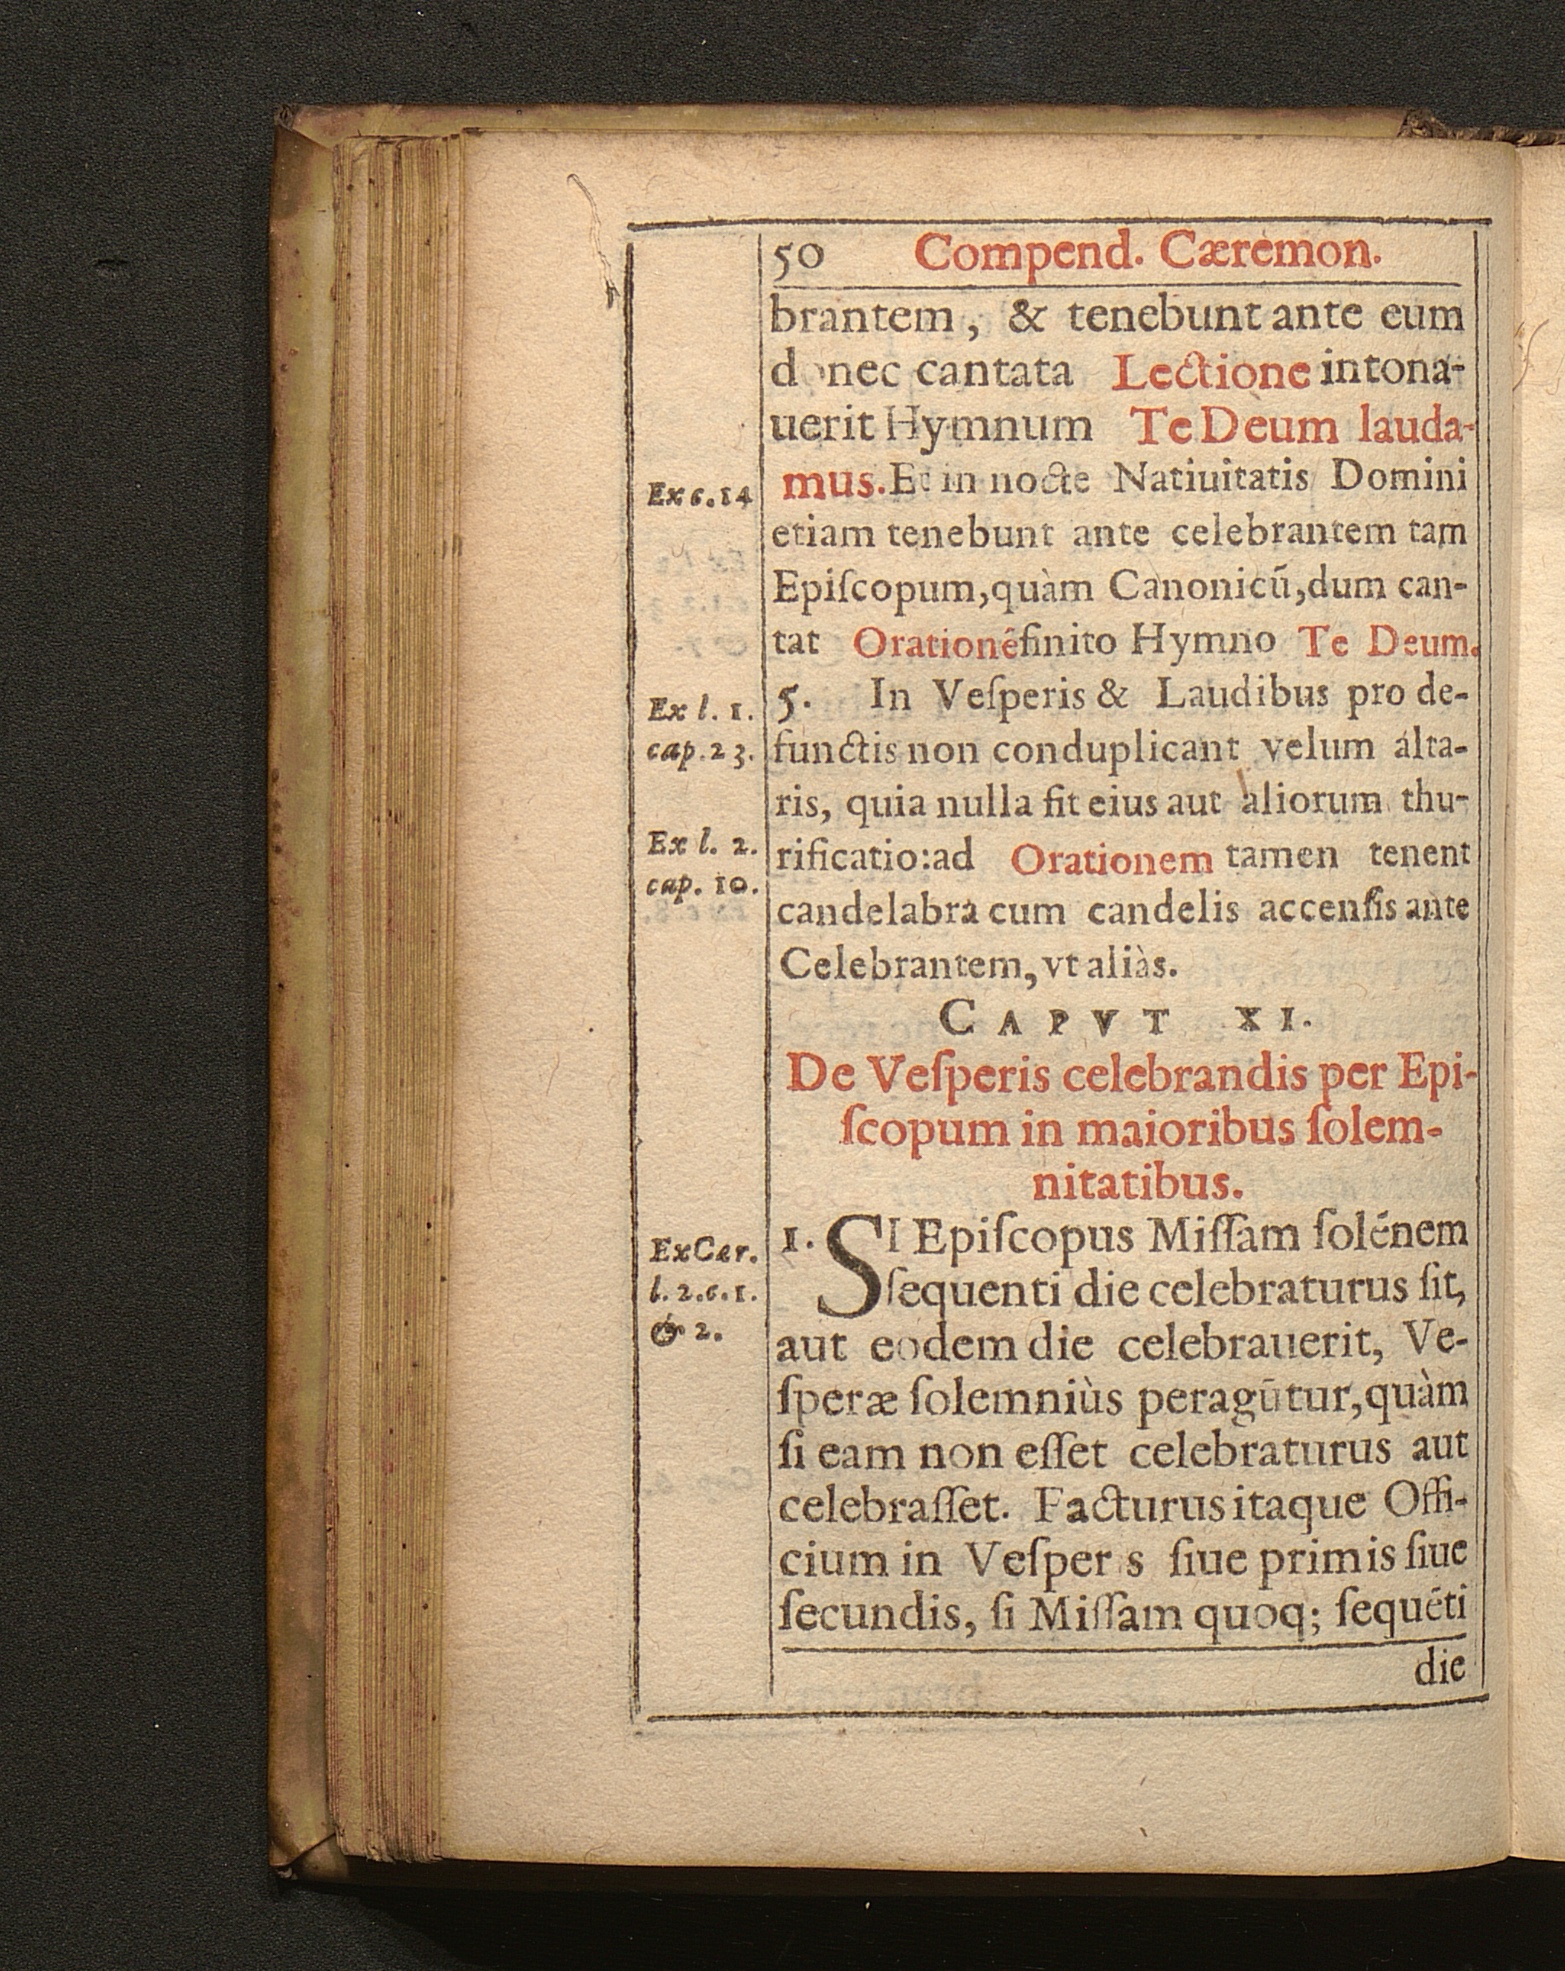 50 Compend. Cæremon.
brantem, & tenebunt ante eum
donec cantata Lectione intona-
uerit Hymnum Te Deum lauda-
Ex c. 14 mus. Et in nocte Natiuitatis Domini
etiam tenebunt ante celebrantem tam
Epiſcopum, quàm Canonicū, dum can-
tat Orationē finito Hymno Te Deum.
Ex l. 1. 5. In Veſperis & Laudibus pro de-
cap. 23. functis non conduplicant velum alta-
ris, quia nulla fit eius aut aliorum thu-
Ex l. 2. rificatio: ad Orationem tamen tenent
cap. 10. candelabra cum candelis accenſis ante
Celebrantem, vt aliàs.
CAPVT XI.
De Veſperis celebrandis per Epi-
ſcopum in maioribus ſolem-
nitatibus.
Ex Cær. 1. SI Epiſcopus Miſſam ſolēnem
l. 2. c. 1. ſequenti die celebraturus ſit,
& 2. aut eodem die celebrauerit, Ve-
ſperæ ſolemniùs peragūtur, quàm
ſi eam non eſſet celebraturus aut
celebraſſet. Facturus itaque Offi-
cium in Veſper s ſiue primis ſiue
ſecundis, ſi Miſſam quoq; ſequēti
die